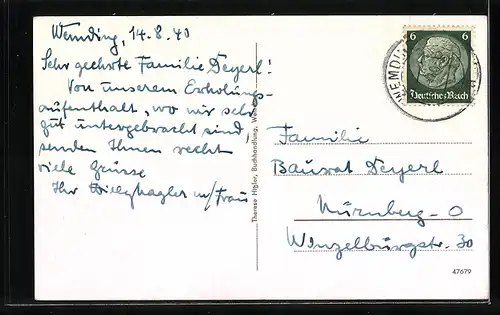 Wemding, 14.8.40
Sehr geehrte Familie Deyerl!
Von unserem Erholungs-
aufenthalt, wo wir sehr
gut untergebracht sind,
senden Ihnen recht
viele Grüsse
Ihr Willy m/Frau
Therese Höfler, Buchhandlung, Wem
6 6
Deutsches Reich
WEMDI
Familie
Baurat Deyerl
Nürnberg-O
Wenzelburgstr. 30
47679